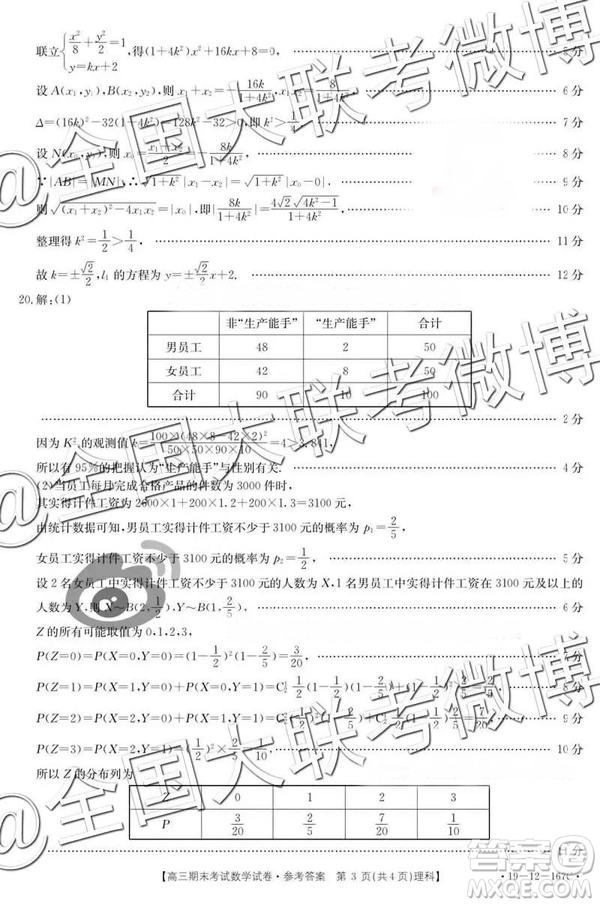 联立{x²/8+y²/2=1, y=kx+2, 得(1+4k²)x²+16kx+8=0, 5分
设A(x₁,y₁),B(x₂,y₂),则x₁+x₂=-16k/(1+4k²), x₁x₂=8/(1+4k²) 6分
Δ=(16k)²-32(1+4k²)=128k²-32>0,即k²>1/4 7分
设N(x₀,y₀),则x₀=-8k/(1+4k²) 8分
∵|AB|=|MN|,∴√(1+k²)|x₁-x₂|=√(1+k²)|x₀-0|, 9分
则√((x₁+x₂)²-4x₁x₂)=|x₀|,即|8k/(1+4k²)|=4√2√(4k²-1)/(1+4k²) 10分
整理得k²=1/2>1/4, 11分
故k=±√2/2,l₁的方程为y=±√2/2x+2. 12分
20.解:(1)
非“生产能手” “生产能手” 合计
男员工 48 2 50
女员工 42 8 50
合计 90 10 100
2分
因为K²的观测值k=100×(48×8-42×2)²/(50×50×90×10)=4>3.841,
所以有95%的把握认为“生产能手”与性别有关. 4分
(2)当员工每月完成合格产品的件数为3000件时,
其实得计件工资为2600×1+200×1.2+200×1.3=3100元,
由统计数据可知,男员工实得计件工资不少于3100元的概率为p₁=2/5,
女员工实得计件工资不少于3100元的概率为p₂=1/2, 5分
设2名女员工中实得计件工资不少于3100元的人数为X,1名男员工中实得计件工资不少于3100元以及以上的
人数为Y,则X~B(2,1/2),Y~B(1,2/5), 6分
Z的所有可能取值为0,1,2,3,
P(Z=0)=P(X=0,Y=0)=(1-1/2)²(1-2/5)=3/20, 7分
P(Z=1)=P(X=1,Y=0)+P(X=0,Y=1)=C₂¹ 1/2(1-1/2)(1-2/5)+(1-1/2)² 2/5=2/5, 8分
9分
P(Z=3)=P(X=2,Y=1)=(1/2)²×2/5=1/10, 10分
所以Z的分布列为
Z 0 1 2 3
P 3/20 2/5 7/20 1/10
11分
【高三期末考试数学试卷·参考答案 第3页(共4页)理科】
·19-12-167C·
@全国大联考微博
@全国大联考微博
@全国大联考微博